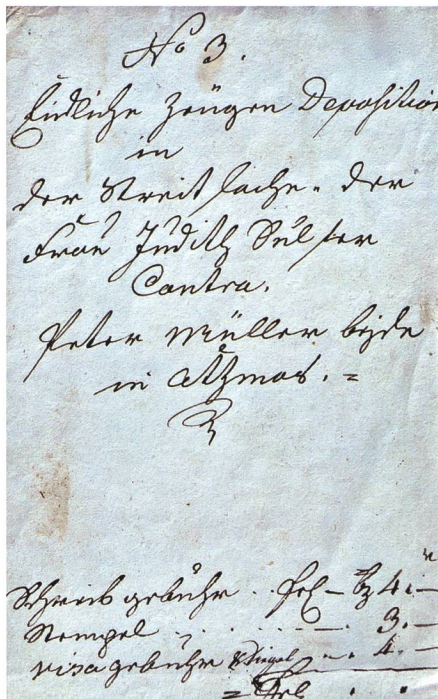 No 3.
Eidliche Zeügen Deposition
in
der Streit sache. der
Frau Judith Sulser
Contra.
Peter Müller beyde
in Atzmos. =
Schreibgebühr . fl - bz 4. -
Stempel . . . . - . 3. -
visa gebühr & Siegel - . 4. -